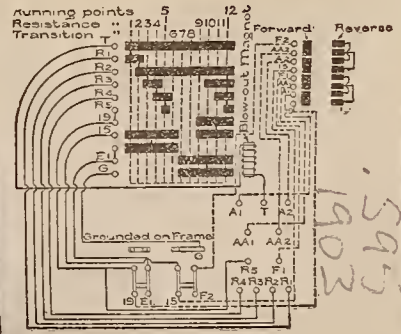 Running points 5 12
Resistance " 1234 91011
Transition " 678
T
R1
R2
R3
R4
R5
19
15
E1
G
Blow-out Magnet
Forward Reverse
F2
AA2
A2
F1
AA1
A1 T A2
AA1 AA2
Grounded on Frame
G
R5 F1
R4 R3 R2 R1
19 E1 15 F2
1903